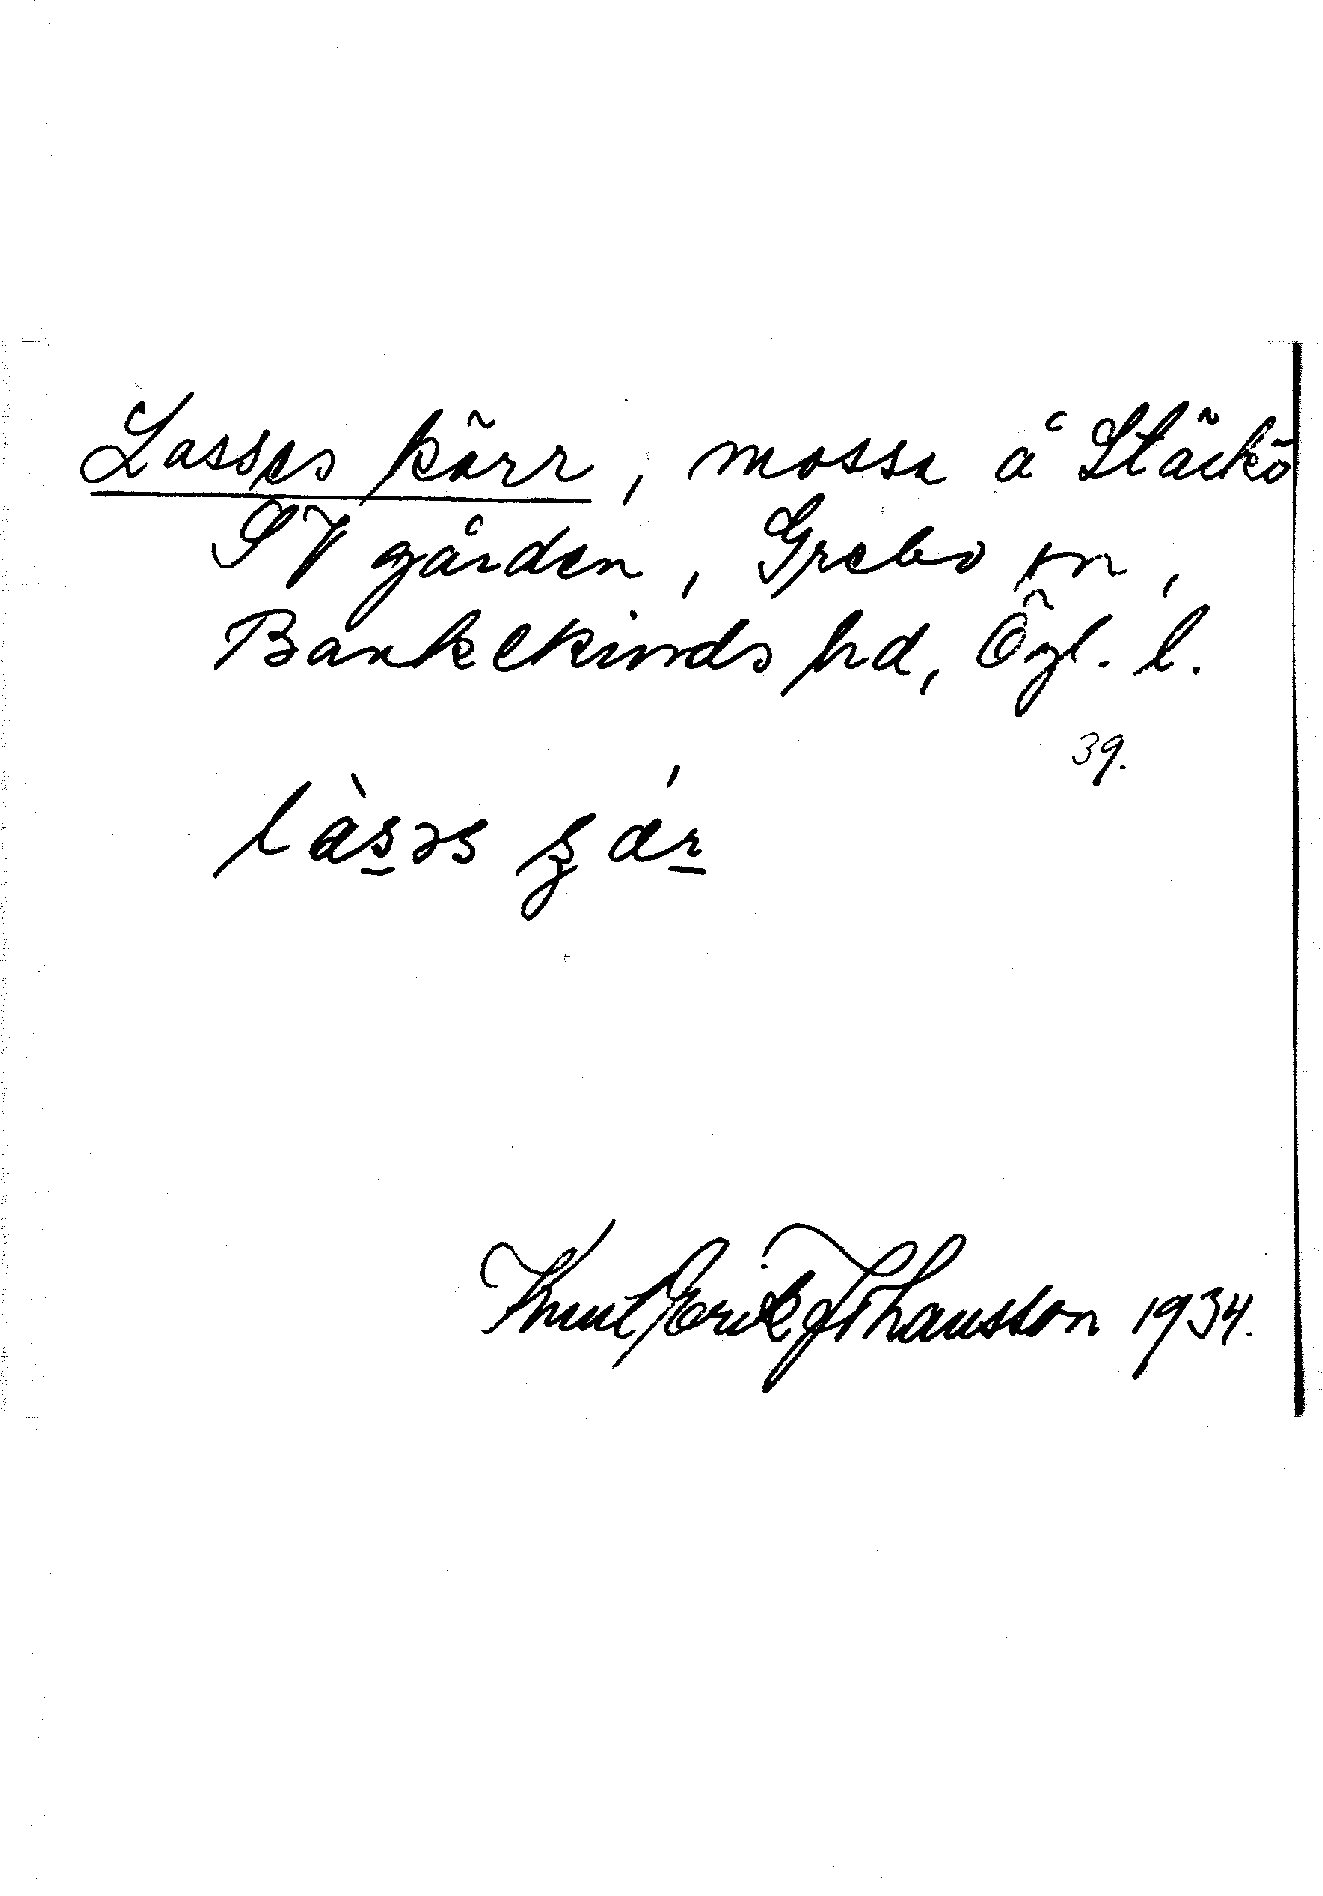 Lasses kärr, mossa å Stäckö
SV gården, Grebo sn,
Bankekinds hd, Ögl. l.
39.
làs̲əs
Knut Erik Johansson 1934.